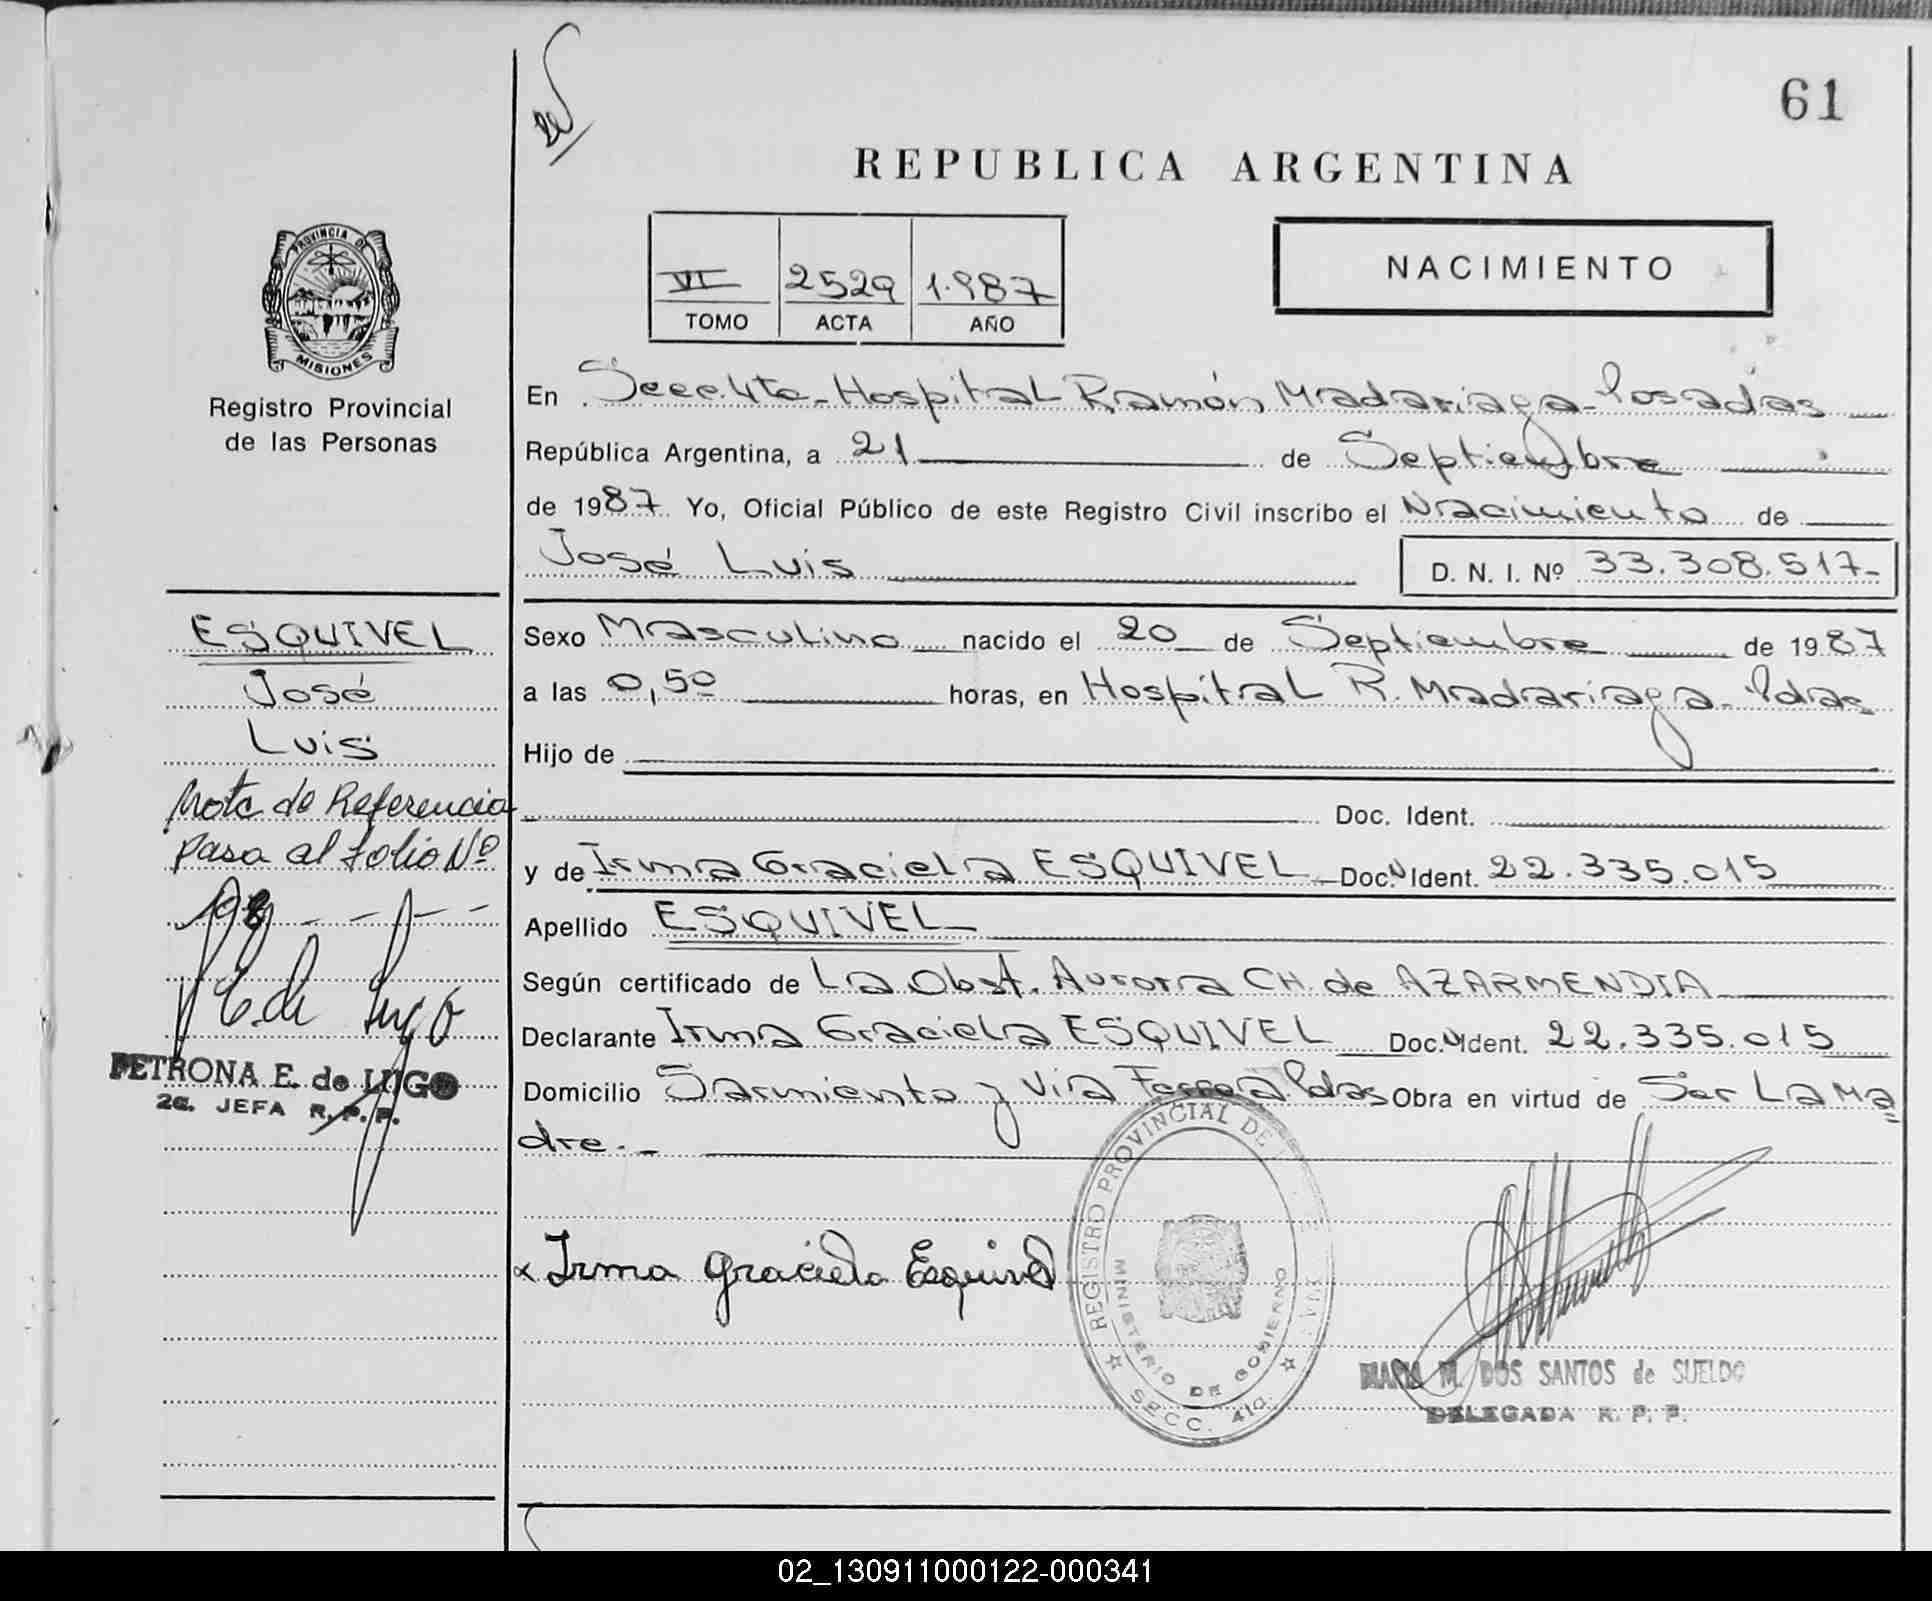 61
REPUBLICA ARGENTINA
VI 2529 1.987
TOMO ACTA AÑO
NACIMIENTO
PROVINCIA DE
MISIONES
Registro Provincial
de las Personas
En Secc. 4ta - Hospital Ramón Madariaga - Posadas
República Argentina, a 21 de Septiembre
de 1987 Yo, Oficial Público de este Registro Civil inscribo el Nacimiento de
José Luis D. N. I. Nº 33.308.517-
Sexo Masculino nacido el 20 de Septiembre de 1987
a las 0,50 horas, en Hospital R. Madariaga - Pdas
Hijo de
Doc. Ident.
y de Irma Graciela ESQUIVEL - Doc. Ident. 22.335.015
Apellido ESQUIVEL
Según certificado de La Obst. Aurora CH. de AZARMENDIA
Declarante Irma Graciela ESQUIVEL Doc. Ident. 22.335.015
Domicilio Sarmiento y Via Ferrea Pdas Obra en virtud de Ser La Ma
dre.-
ESQUIVEL
José
Luis
Nota de Referencia
pasa al folio Nº
198 - - - -
P E. de Lugo
PETRONA E. de LUGO
2a. JEFA R. P. P.
x Irma Graciela Esquivel
REGISTRO PROVINCIAL DE
MINISTERIO DE GOBIERNO
SECC. 4ta.
MARIA M. DOS SANTOS de SUELDO
DELEGADA R. P. P.
02_130911000122-000341